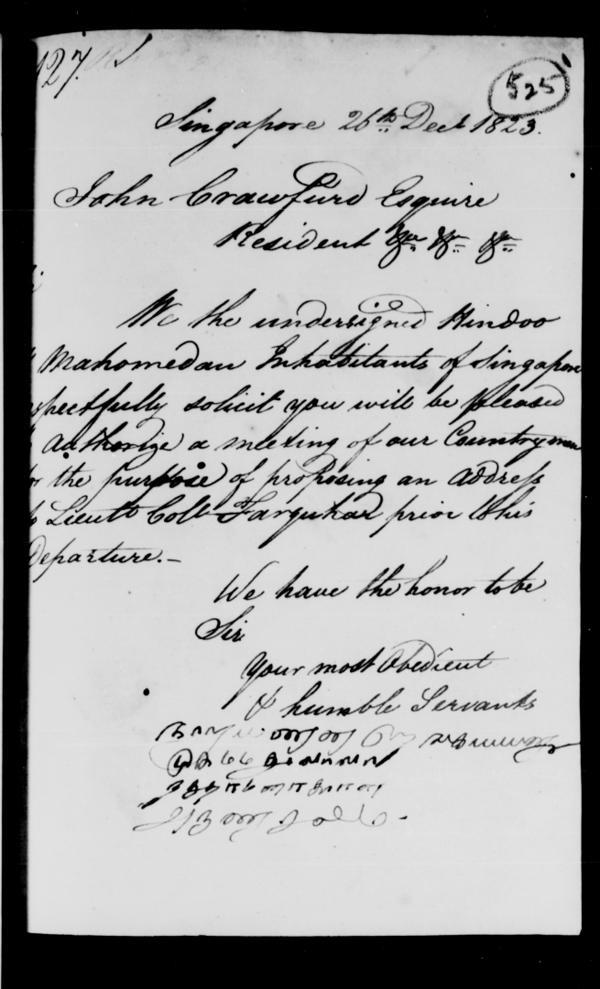 127.
525
Singapore 26th Dect 1823.
John Crawfurd Esquire
Resident &c &c &c
We the undersigned Hindoo
Mahomedan Inhabitants of Singapore
spectfully solicit you will be pleased
Authorize a meeting of our Countrymen
for the purpose of proposing an Address
to Lieutt Coll Farquhar prior to his
Departure.—
We have the honor to be
Sir
Your most Obedient
& humble Servants